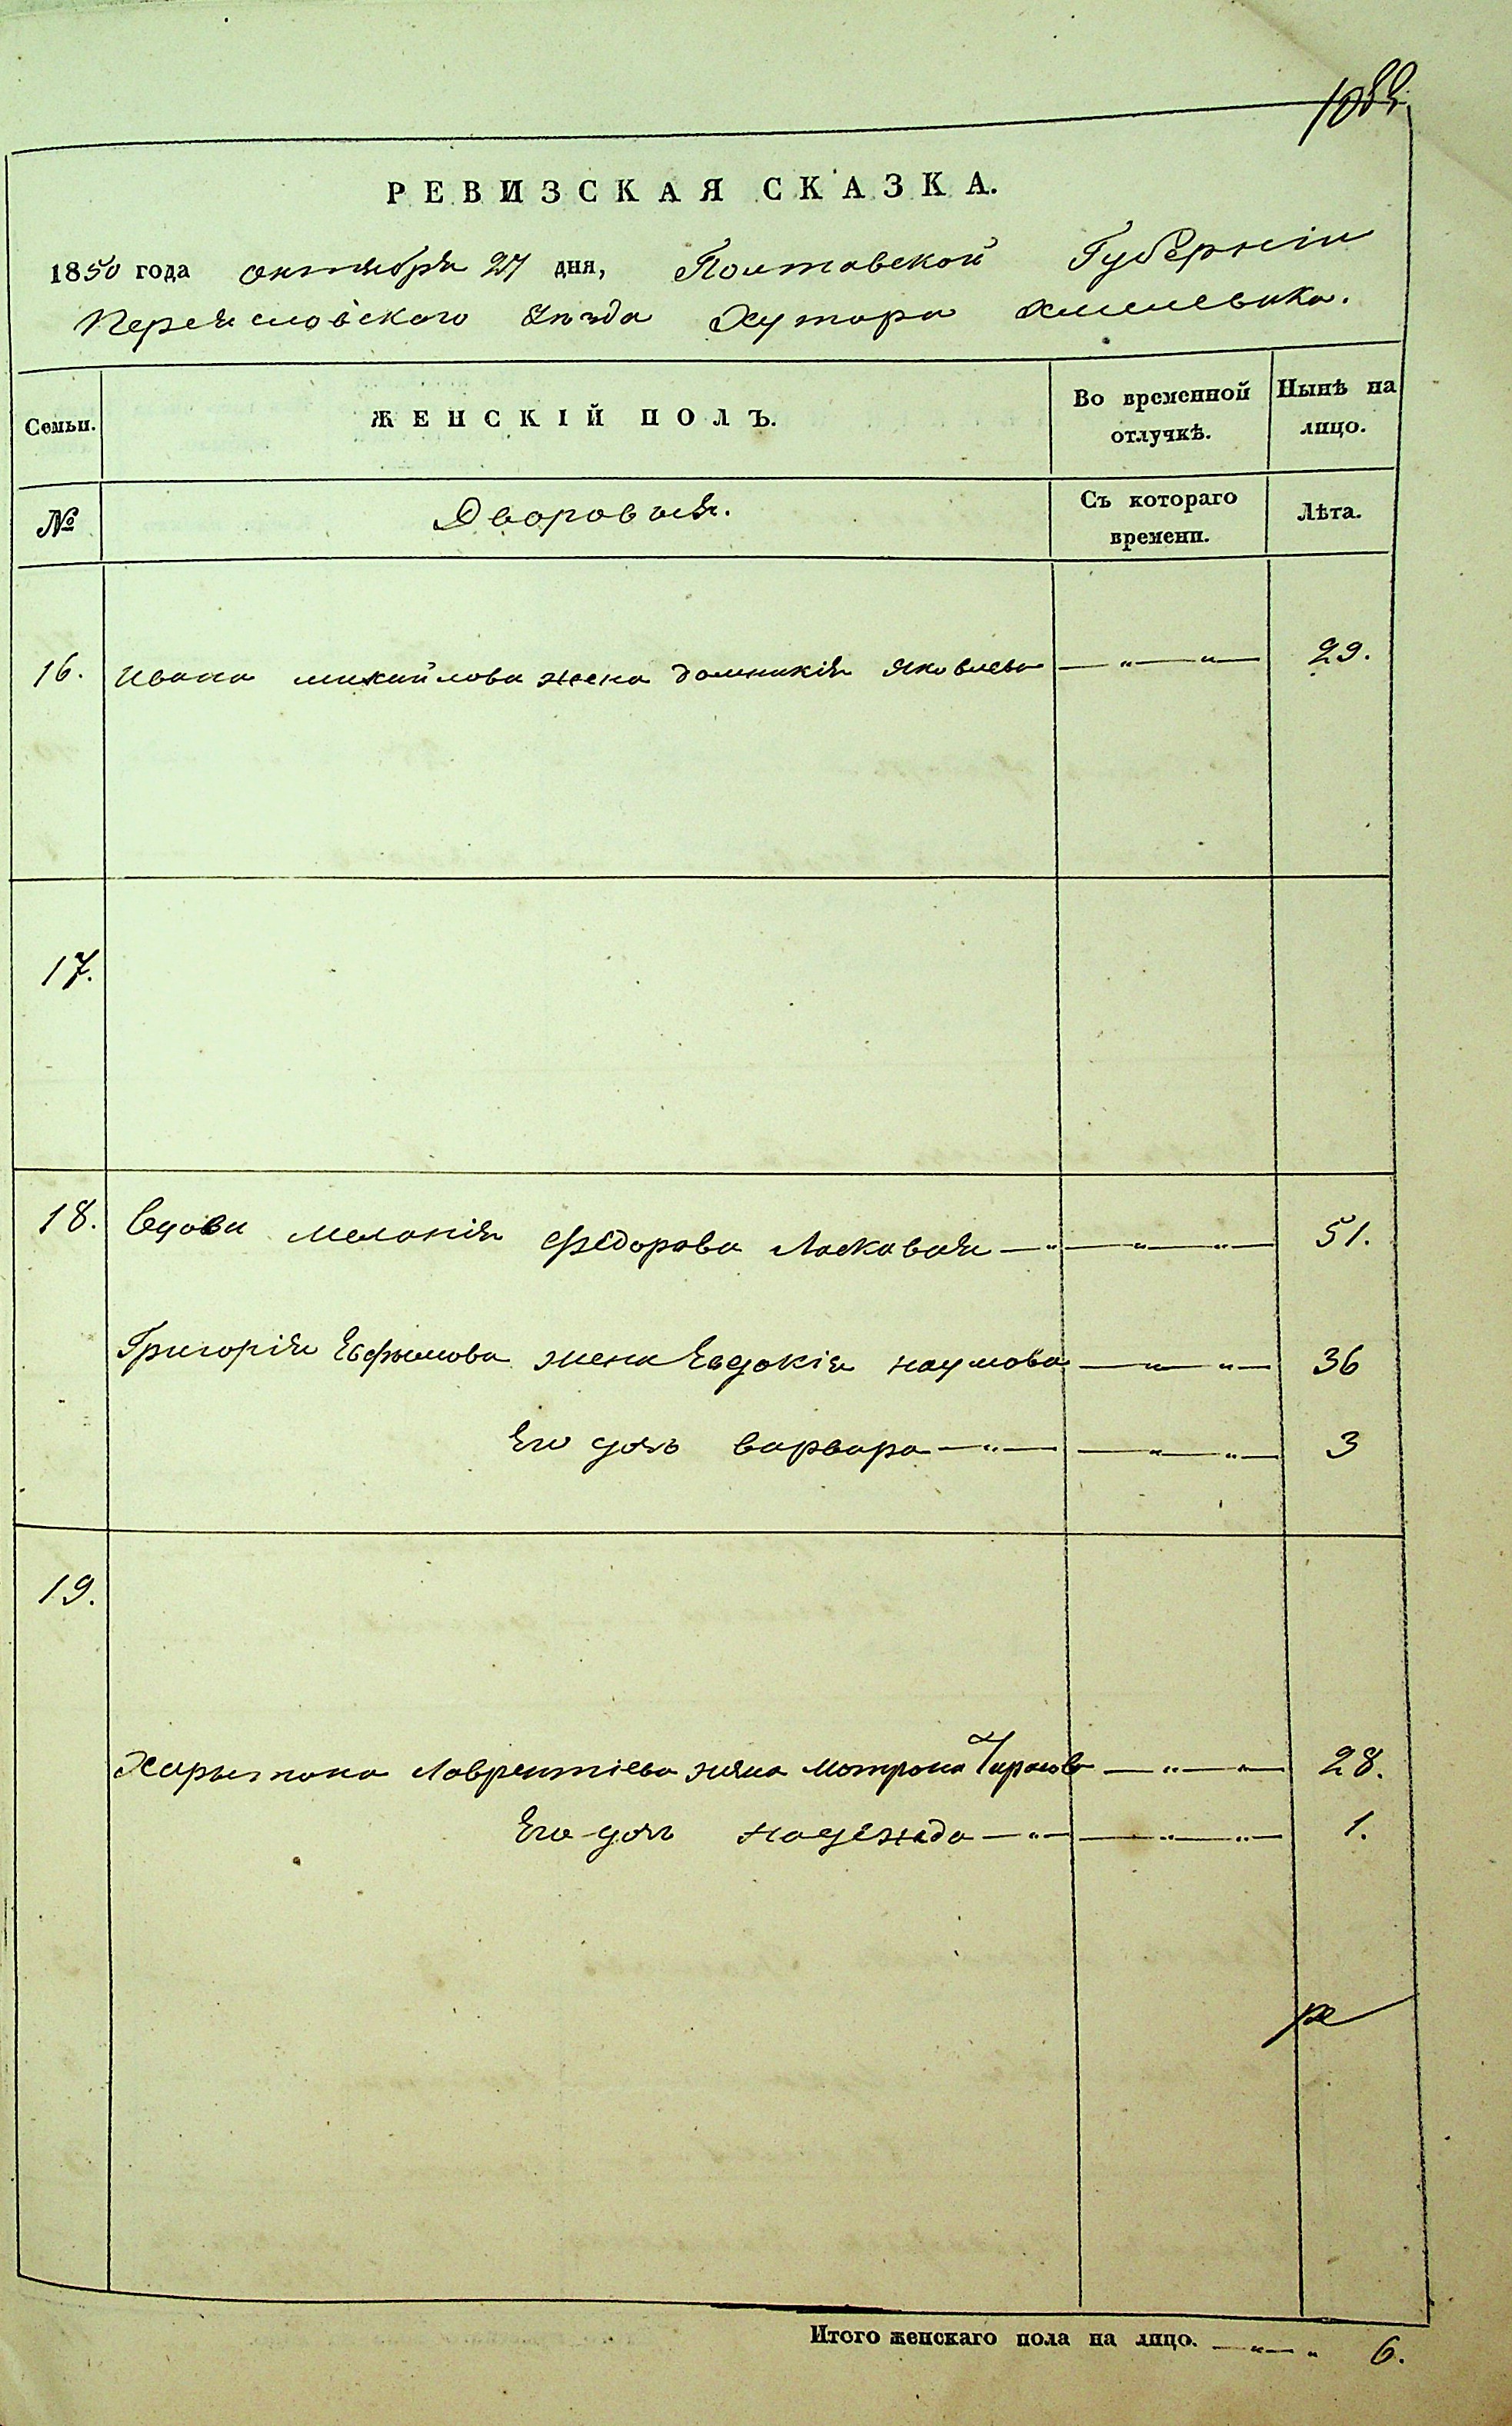 РЕВИЗСКАЯ СКАЗКА.
1850 года октября 27 дня, Полтавской Губерніи
Переяславского Уѣзда Хутора Хмелевика.
Семьи. ЖЕНСКІЙ ПОЛЪ. Во временной отлучкѣ. Нынѣ на лицо.
№ Дворовыя. Съ котораго времени. Лѣта.
16. Ивана михайлова жена домникія Яковлева — „ — „ — 29.
17.
18. Вдова Меланія Федорова Ласкавая — „ — „ — „ — 51.
Григорія Евфимова жена Евдокія наумова — „ — „ — 36
Его дочь варвара — „ — — „ — „ — 3
19.
Харытона Лаврентіева жена Мотрона Тарасова — „ — „ — 28.
Его дочь надежда — „ — — „ — „ — 1.
Итого женскаго пола на лицо. — „ — „ 6.